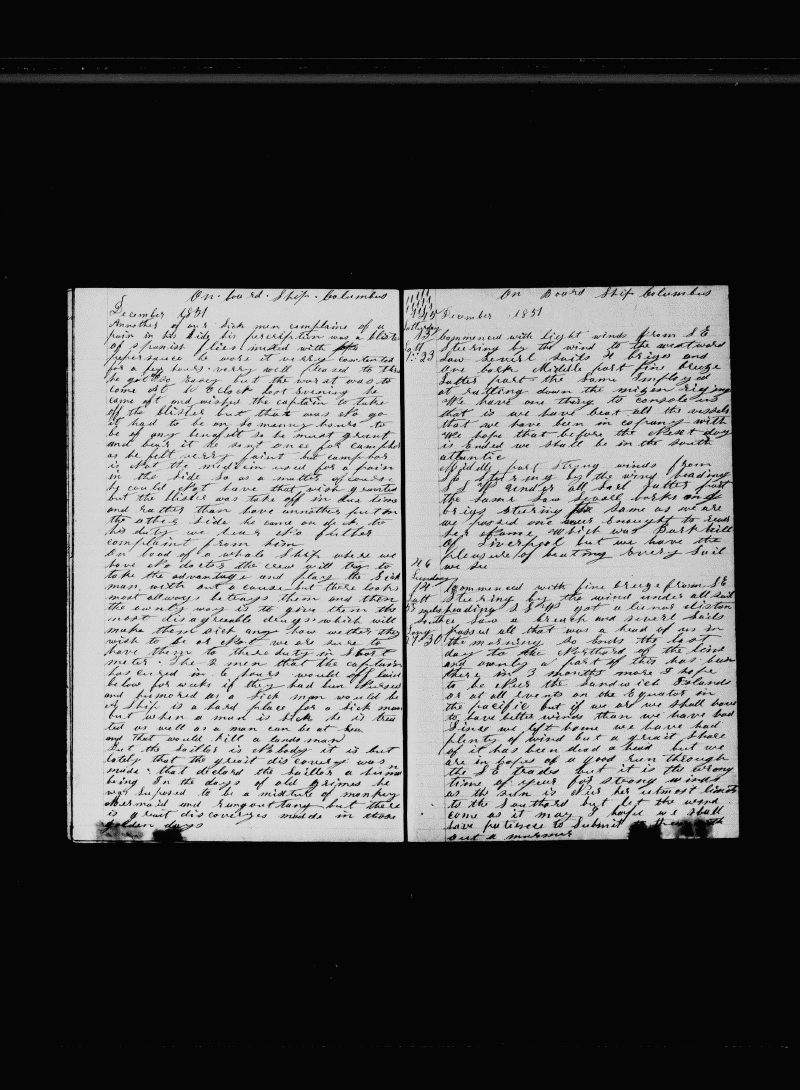 On board Ship Columbus
December 1851
Annother of our Sick men complains of a
pain in his Side his perscription was a blister
of spanish flies mixed with
pepersauce he wore it verry contented
for a few hours verry well pleased to think
he got so easey but the worst was to
come at 10 O clock last evening he
came aft and wished the captain to take
off the blister but that was No go
it had to be on so manny hours to
be of any benefit so he must grunt
and bear it he sent once for camphor
as he felt verry faint but camphor
is Not the medicin used for a pain
in the Side So as a matter of course
he could Not have that wish granted
but the blister was take off in due time
and rather than have annother put on
the other Side he came on deck to
his duty we hear No further
complaint from him
On board of a whale Ship where we
have No doctor the crew will try to
take the advantage and play the Sick
man with out a cause but there looks
most allways betrays them and then
the ownly way is to give them the
most disagreeable drugs which will
make them Sick any how wether they
wish to be or Not we are sure to
have them to there duty in Short
meter. The 2 men that the captain
has cured in 6 hours would off laid
below for weeks if they had ben Nursed
and humored as a Sick man would be
a Ship is a hard place for a Sick man
but when a man is Sick he is trea
ted as well as a man can be at Sea
and that would kill a lands man
But the Sailler is Nobody it is but
lately that the greait discovery was
made that declard the Sailler a human
being In the days of old grimes he
was suposed to be a mixture of monkey
Mermaid and rungouttang but there
is greait discoveryes maide in those
golden days
On Board Ship Columbus
December 1851
Satterday
13 Commenced with light winds from S E
Steering by the wind to the westward
Saw Severl Sails 4 briggs and
one bark Middle part fine breeze
Latter part the Same Imployed
at rattling down the mizen riging
We have one thing to console us
that is we have beat all the vessels
that we have been in company with
We hope that before the Next day
is Ended we Shall be in the South
atlantic
Middle part Strong winds from
S E Stering by the wind heading
S S W under all Sail Latter part
the same Saw Severll barks and
brigs Steering the same as we are
we passed one near Enought to read
her Name Which was Bark hill
Of Liverpool but we have the
pleasure of beating Every Sail
we See
Sunday
14 Commenced with fine breeze from S E
Steering by the wind under all Sail
heading S S W got a lunar distan
ce Saw a breach and Severl Sails
passed all that was a head of us in
the morning So Ends the last
day to the Northard of the line
and ownly a part of this has been
there in 3 months more I hope
to be Near the Sandwich Islands
or at all Events on the Equator in
the pacific but if we are we Shall have
to have better winds than we have had
Since we left home we have had
plenty of wind but a greait Share
of it has been dead a head but we
are in hopes of a good run through
the S E trades but it is the wrong
time of year for Strong winds
as the Sun is Near her utmost limits
to the Southard but let the wind
come as it may I hope we Shall
have patience to Submit
out a murmur